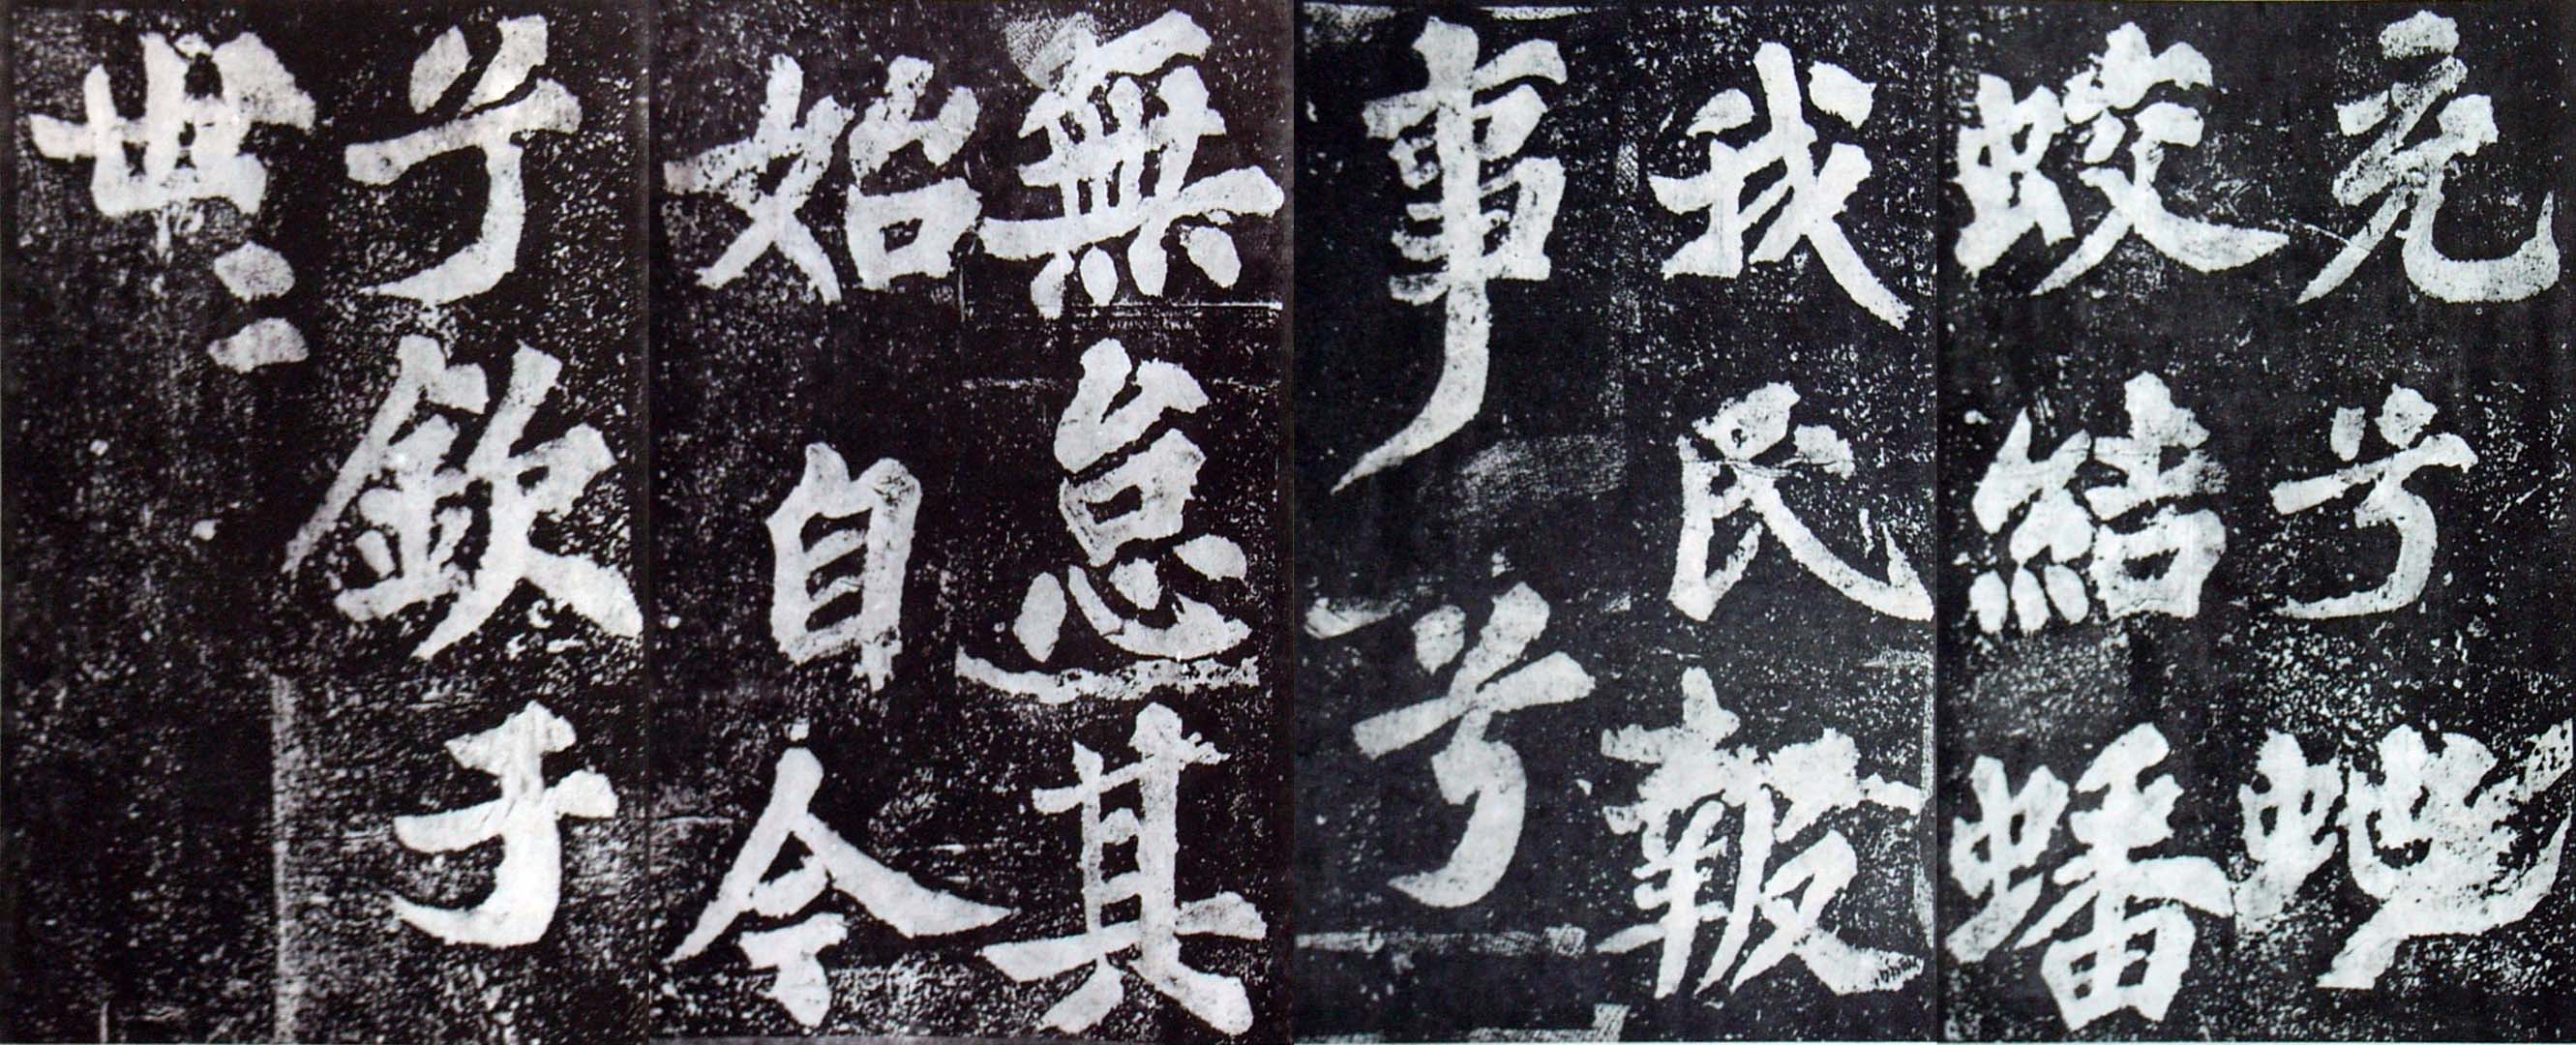 充兮蛇
蛟結蟠
我民報
事兮
無怠其
始自今
兮欽于
世〻